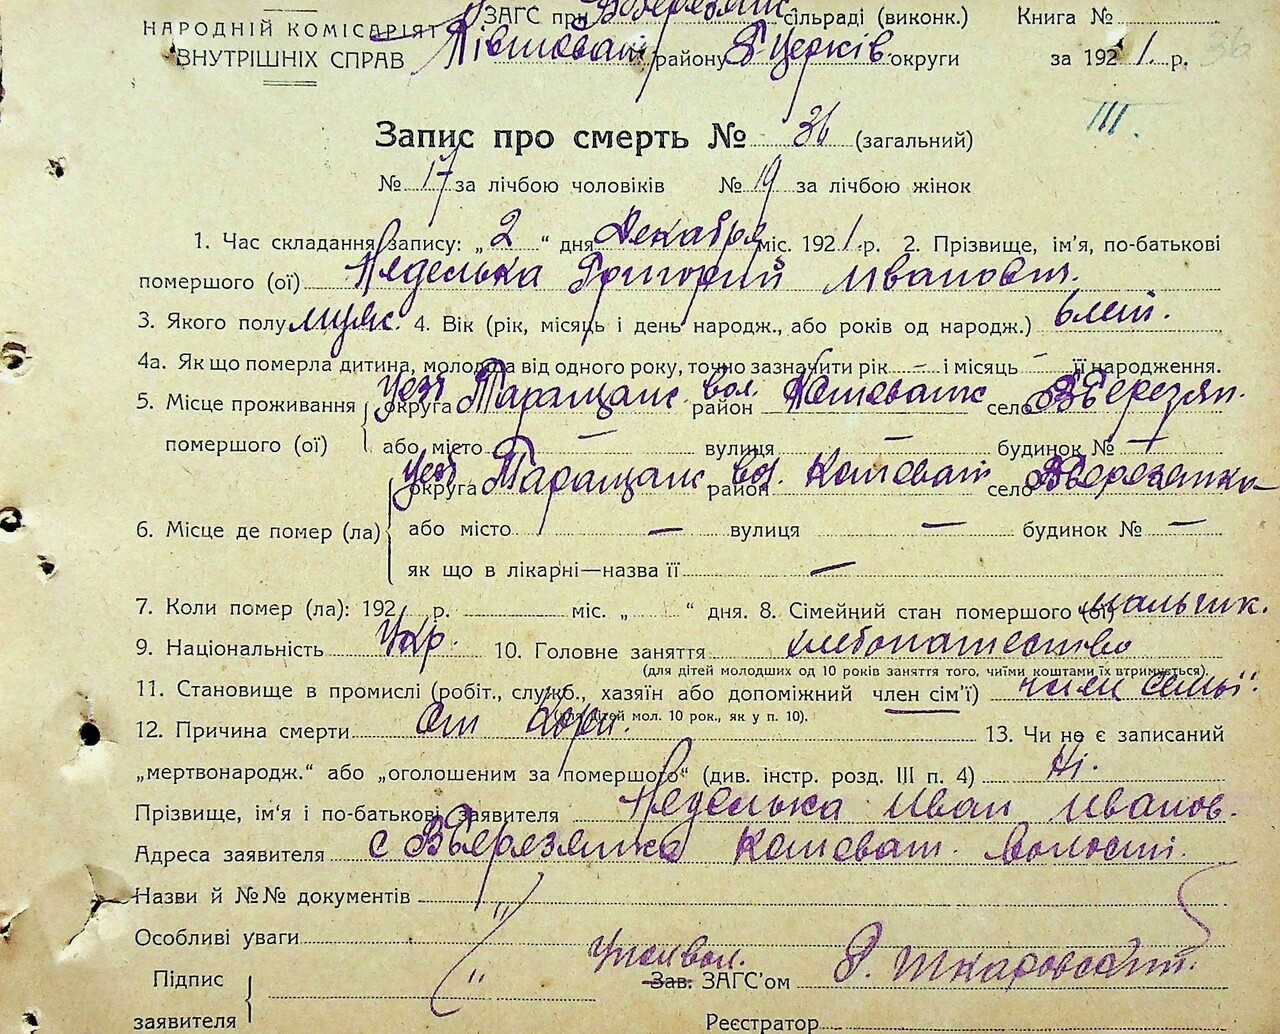 НАРОДНІЙ КОМІСАРІЯТ ВНУТРІШНІХ СПРАВ
ЗАГС при В Березянск. сільраді (виконк.) Книга №
району Б Церків. округи за 1921. р. 36
III.
Запис про смерть № 36 (загальний)
№ 17 за лічбою чоловіків № 19 за лічбою жінок
1. Час складання запису: „2“ дня Декабря міс. 1921 р. 2. Прізвище, ім'я, по-батькові
помершого (ої) Неделька Григорий Иванович.
3. Якого полу мужс. 4. Вік (рік, місяць і день народж., або років од народж.) 6 лет.
4а. Як що померла дитина, молодша від одного року, точно зазначити рік — і місяць — її народження.
5. Місце проживання помершого (ої) уезд округа Таращанск вол. район Кошеванск село В Березян.
або місто — вулиця — будинок № —
6. Місце де помер (ла) уезд округа Таращанск вол. район Кошеват село В Березянка
або місто — вулиця — будинок № —
як що в лікарні—назва її —
7. Коли помер (ла): 192 р. міс. „ “ дня. 8. Сімейний стан помершого (ої) мальчик.
9. Національність Укр. 10. Головне заняття хлебопашество
(для дітей молодших од 10 років заняття того, чиїми коштами їх втримується).
11. Становище в промислі (робіт., служб., хазяїн або допоміжний член сім'ї) член семьї.
(для дітей мол. 10 рок., як у п. 10).
12. Причина смерти от кори. 13. Чи не є записаний
„мертвонародж.“ або „оголошеним за помершого“ (див. інстр. розд. III п. 4) Ні.
Прізвище, ім'я і по-батькові заявителя Неделька Иван Иванов.
Адреса заявителя с В Березянка Кошеват. волости.
Назви й №№ документів "
Особливі уваги
Підпис заявителя " Зав. ЗАГС'ом
Реєстратор